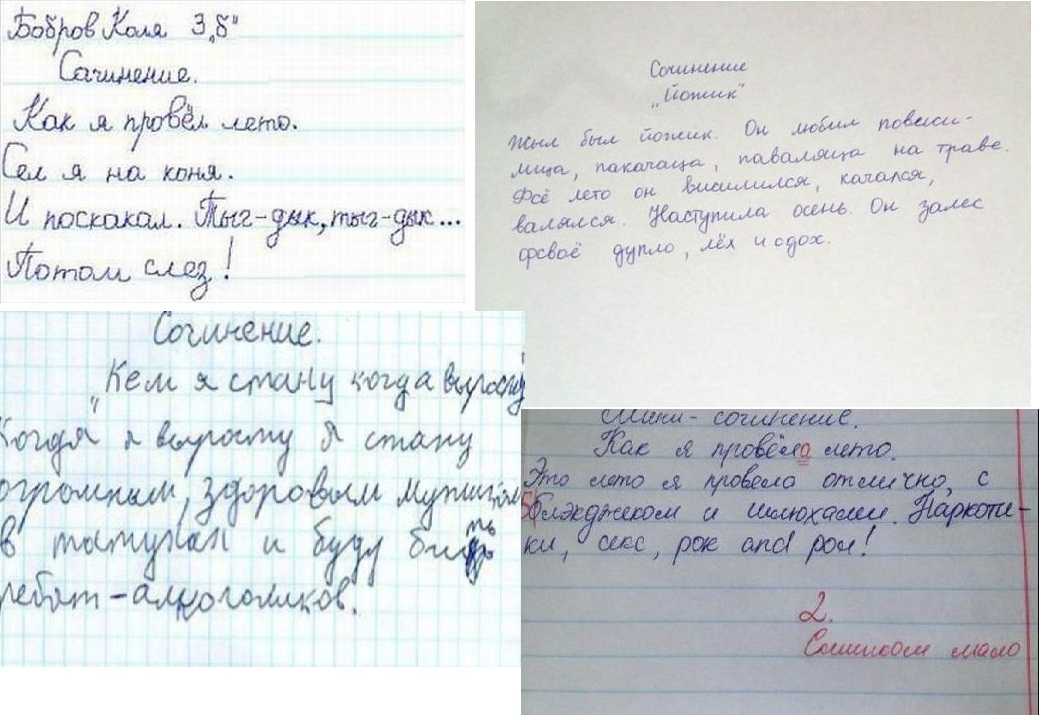 Бобров Коля 3 „б"
Сачинение.
Как я провёл лето.
Сел я на коня.
И поскакал. Тыг-дык, тыг-дык...
Потом слез!
Сочинение
„Йожик"
Жыл был йожик. Он любил повиси-
мица, пакачаца, паваляца на траве.
Фсё лето он висилился, качался,
валялся. Наступила осень. Он залес
фсваё дупло, лёх и сдох.
Сочинение.
„Кем я стану когда вырасту
Когда я вырасту я стану
огромным, здоровым мужиком
в татухах и буду бить
ребят-алкоголиков.
Мини-сочинение.
Как я провела лето.
Это лето я провела отлично, с
блэкджеком и шлюхами. Наркоти-
ки, секс, рок and рол!
2.
Слишком мало